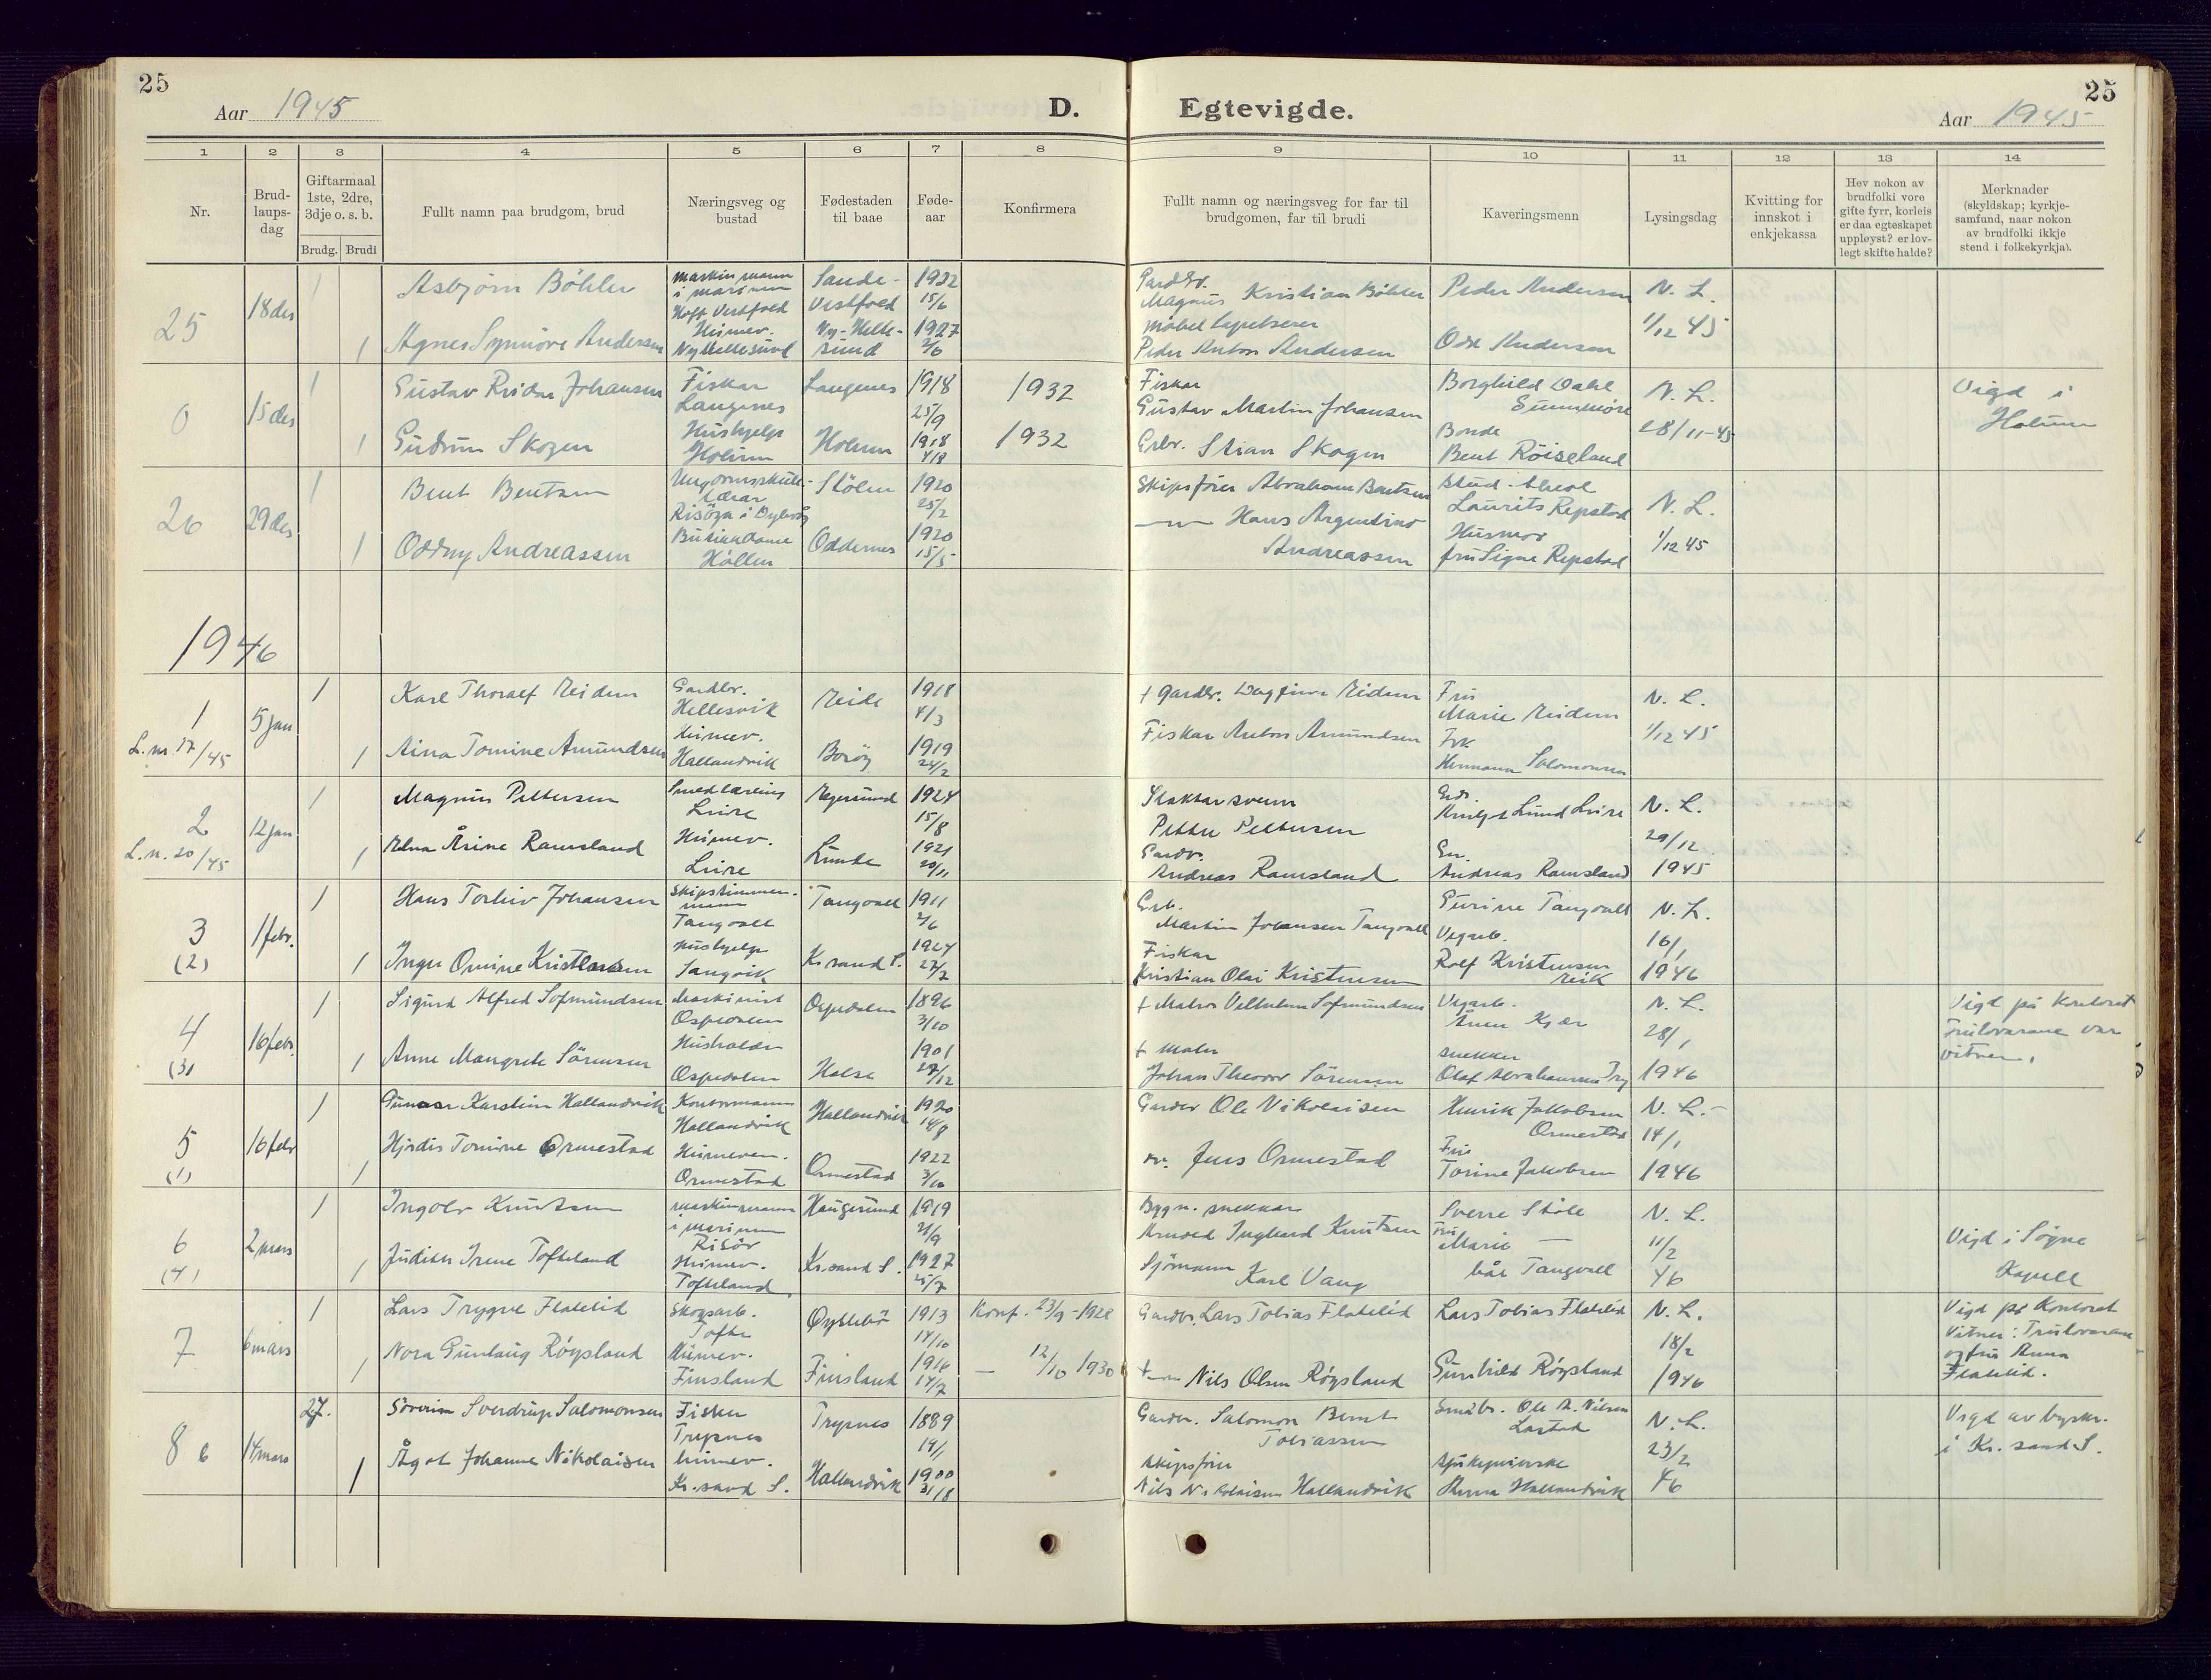 25
Aar 1945
D. Egtevigde.
25
Aar 1945
1 2 3 4 5 6 7 8 9 10 11 12 13 14
Nr.
Brud-
laups-
dag
Giftarmaal
1ste, 2dre,
3dje o. s. b.
Brudg. Brudi
Fullt namn paa brudgom, brud
Næringsveg og
bustad
Fødestaden
til baae
Føde-
aar
Konfirmera
Fullt namn og næringsveg for far til
brudgomen, far til brudi
Kaveringsmenn
Lysingsdag
Kvitting for
innskot i
enkjekassa
Hev nokon av
brudfolki vore
gifte fyrr, korleis
er daa egteskapet
uppløyst? er lov-
legt skifte halde?
Merknader
(skyldskap; kyrkje-
samfund, naar nokon
av brudfolki ikkje
stend i folkekyrkja).
25 18 des
1 Asbjørn Böhler
maskinmann
i marinen
Hoff Vestfold
Sande-
Vestfold
1922
15/6
Magnus Kristian Böhler
Peder Andersen
N. L.
1/12 45
1 Agnes Synnöve Andersen
Heimev.
Ny Hellesund
Ny-Helle-
sund
1927
2/6
Peder Anton Andersen
Odd Andersen
0 15 des
1 Gustav Reidar Johansen
Fiskar
Langenes
Langenes
1918
25/9
1932
Fiskar
Gustav Martin Johansen
Borghild Dahl
N. L.
28/11-45
Vigd i
Holum
1 Gudrun Skogen
Hushjelp
Holum
Holum
1918
4/8
1932
Grbr. Stian Skogen
Bonde
Bent Röiseland
26 29 des
1 Bent Bentsen
lærar
Risöya i Dybvåg
Stölen
1920
25/2
Skipsförer Abraham Bentsen
stud. theol
Laurits Repstad
N. L.
1/12 45
1 Oddny Andreassen
Butikkdame
Höllen
Oddernes
1920
15/5
—"— Hans Argentino
Andreassen
Husmor
fru Signe Repstad
1946
1
L. nr. 17/45
5 jan
1 Karl Thoralf Eidem
Gardbr.
Hellesvik
Eide
1918
4/3
+ Gardbr. Dagfinn Eidem
Fru
Marie Eidem
N. L.
1/12 45
1 Aina Tomine Amundsen
Heimev.
Hallandvik
Boröy
1919
24/2
Fiskar Anton Amundsen
Hermann Salomonsen
2
L. n. 20/45
12 jan
1 Magnus Pettersen
Smedlæreing
Leire
Egersund
1924
15/8
Slaktarsvenn
Petter Pettersen
N. L.
29/12
1945
1 Elna Åsine Ramsland
Heimev.
Leire
Lunde
1921
20/11
Gardbr.
Andreas Ramsland
Andreas Ramsland
3
(2)
1 febr.
1 Hans Torleiv Johansen
Skipstimmer-
mann
Tangvall
Tangvall
1911
2/6
Martin Johansen Tangvall
Gurine Tangvall
N. L.
16/1
1946
1 Inger Omine Kristensen
Hushjelp
Langvik
Kr.sand S.
1924
27/7
Fiskar
Kristian Olai Kristensen
Vegarb.
Rolf Kristensen
Eik
4
(3)
16 febr.
1 Sigurd Alfred Sofmundsen
Maskinist
Ospedalen
Ospedalen
1896
3/10
+ Matros Vilhelm Sofmundsen
Vegarb.
Kjær
N. L.
28/1
1946
Vigd på Kontoret
Trulovarane var
vitner.
1 Anne Margrete Sörensen
Husholder
Ospedalen
Halse
1901
27/12
+ maler
Johan Theodor Sörensen
snekker
Olaf Abrahamsen Try
5
(1)
16 febr
1 Gunnar Karstein Hallandvik
Kontormann
Hallandvik
Hallandvik
1920
14/8
Gardbr Ole Nikolaisen
Henrik Jakobsen
Ormestad
N. L.-
14/1
1946
1 Hjördis Tomine Ormestad
Heimever.
Ormestad
Ormestad
1922
3/10
Jens Ormestad
Fru
Torine Jakobsen
6
(4)
2 mars
1 Ingolv Knutsen
maskinmann
i marinen
Risör
Haugesund
1919
21/9
Bygn. snekkar
Arnold Ingvard Knutsen
Sverre Støle
N. L.
11/2
46
Vigd i Søgne
Kapell
1 Judith Irene Tofteland
Heimev.
Tofteland
Kr.sand S.
1927
25/7
Sjömann
Karl Vang
Fru
Marie —
båe Tangvall
7
6 mars
1 Lars Trygve Flatelid
Skogsarb.
Tofte
Øyslebø
1913
14/10
Konf. 23/9-1928
Gardbr. Lars Tobias Flatelid
Lars Tobias Flatelid
N. L.
18/2
1946
Vigd på Kontoret
Vitner: Trulovarane
og fru Anna
Flatelid.
1 Nora Gunlaug Røysland
Heimev.
Finsland
Finsland
1916
14/7
— 12/10 1930
+ —"— Nils Olsen Røysland
Gunhild Røysland
8 6
14 mars
27. Söverin Sverdrup Salomonsen
Fisker
Trysnes
Trysnes
1889
19/1
Gardbr. Salomon Bernt
Tobiassen
Småbr. Ole A. Nilsen
Lastad
N. L.
23/2
46
Vigd av byskr.
i Kr. sand S.
1 Ågot Johanne Nikolaisen
heimev.
Kr. sand S.
Hallandvik
1900
31/8
skipsförer
Nils Nikolaisen Hallandvik
sjukepleierske
Anna Hallandvik